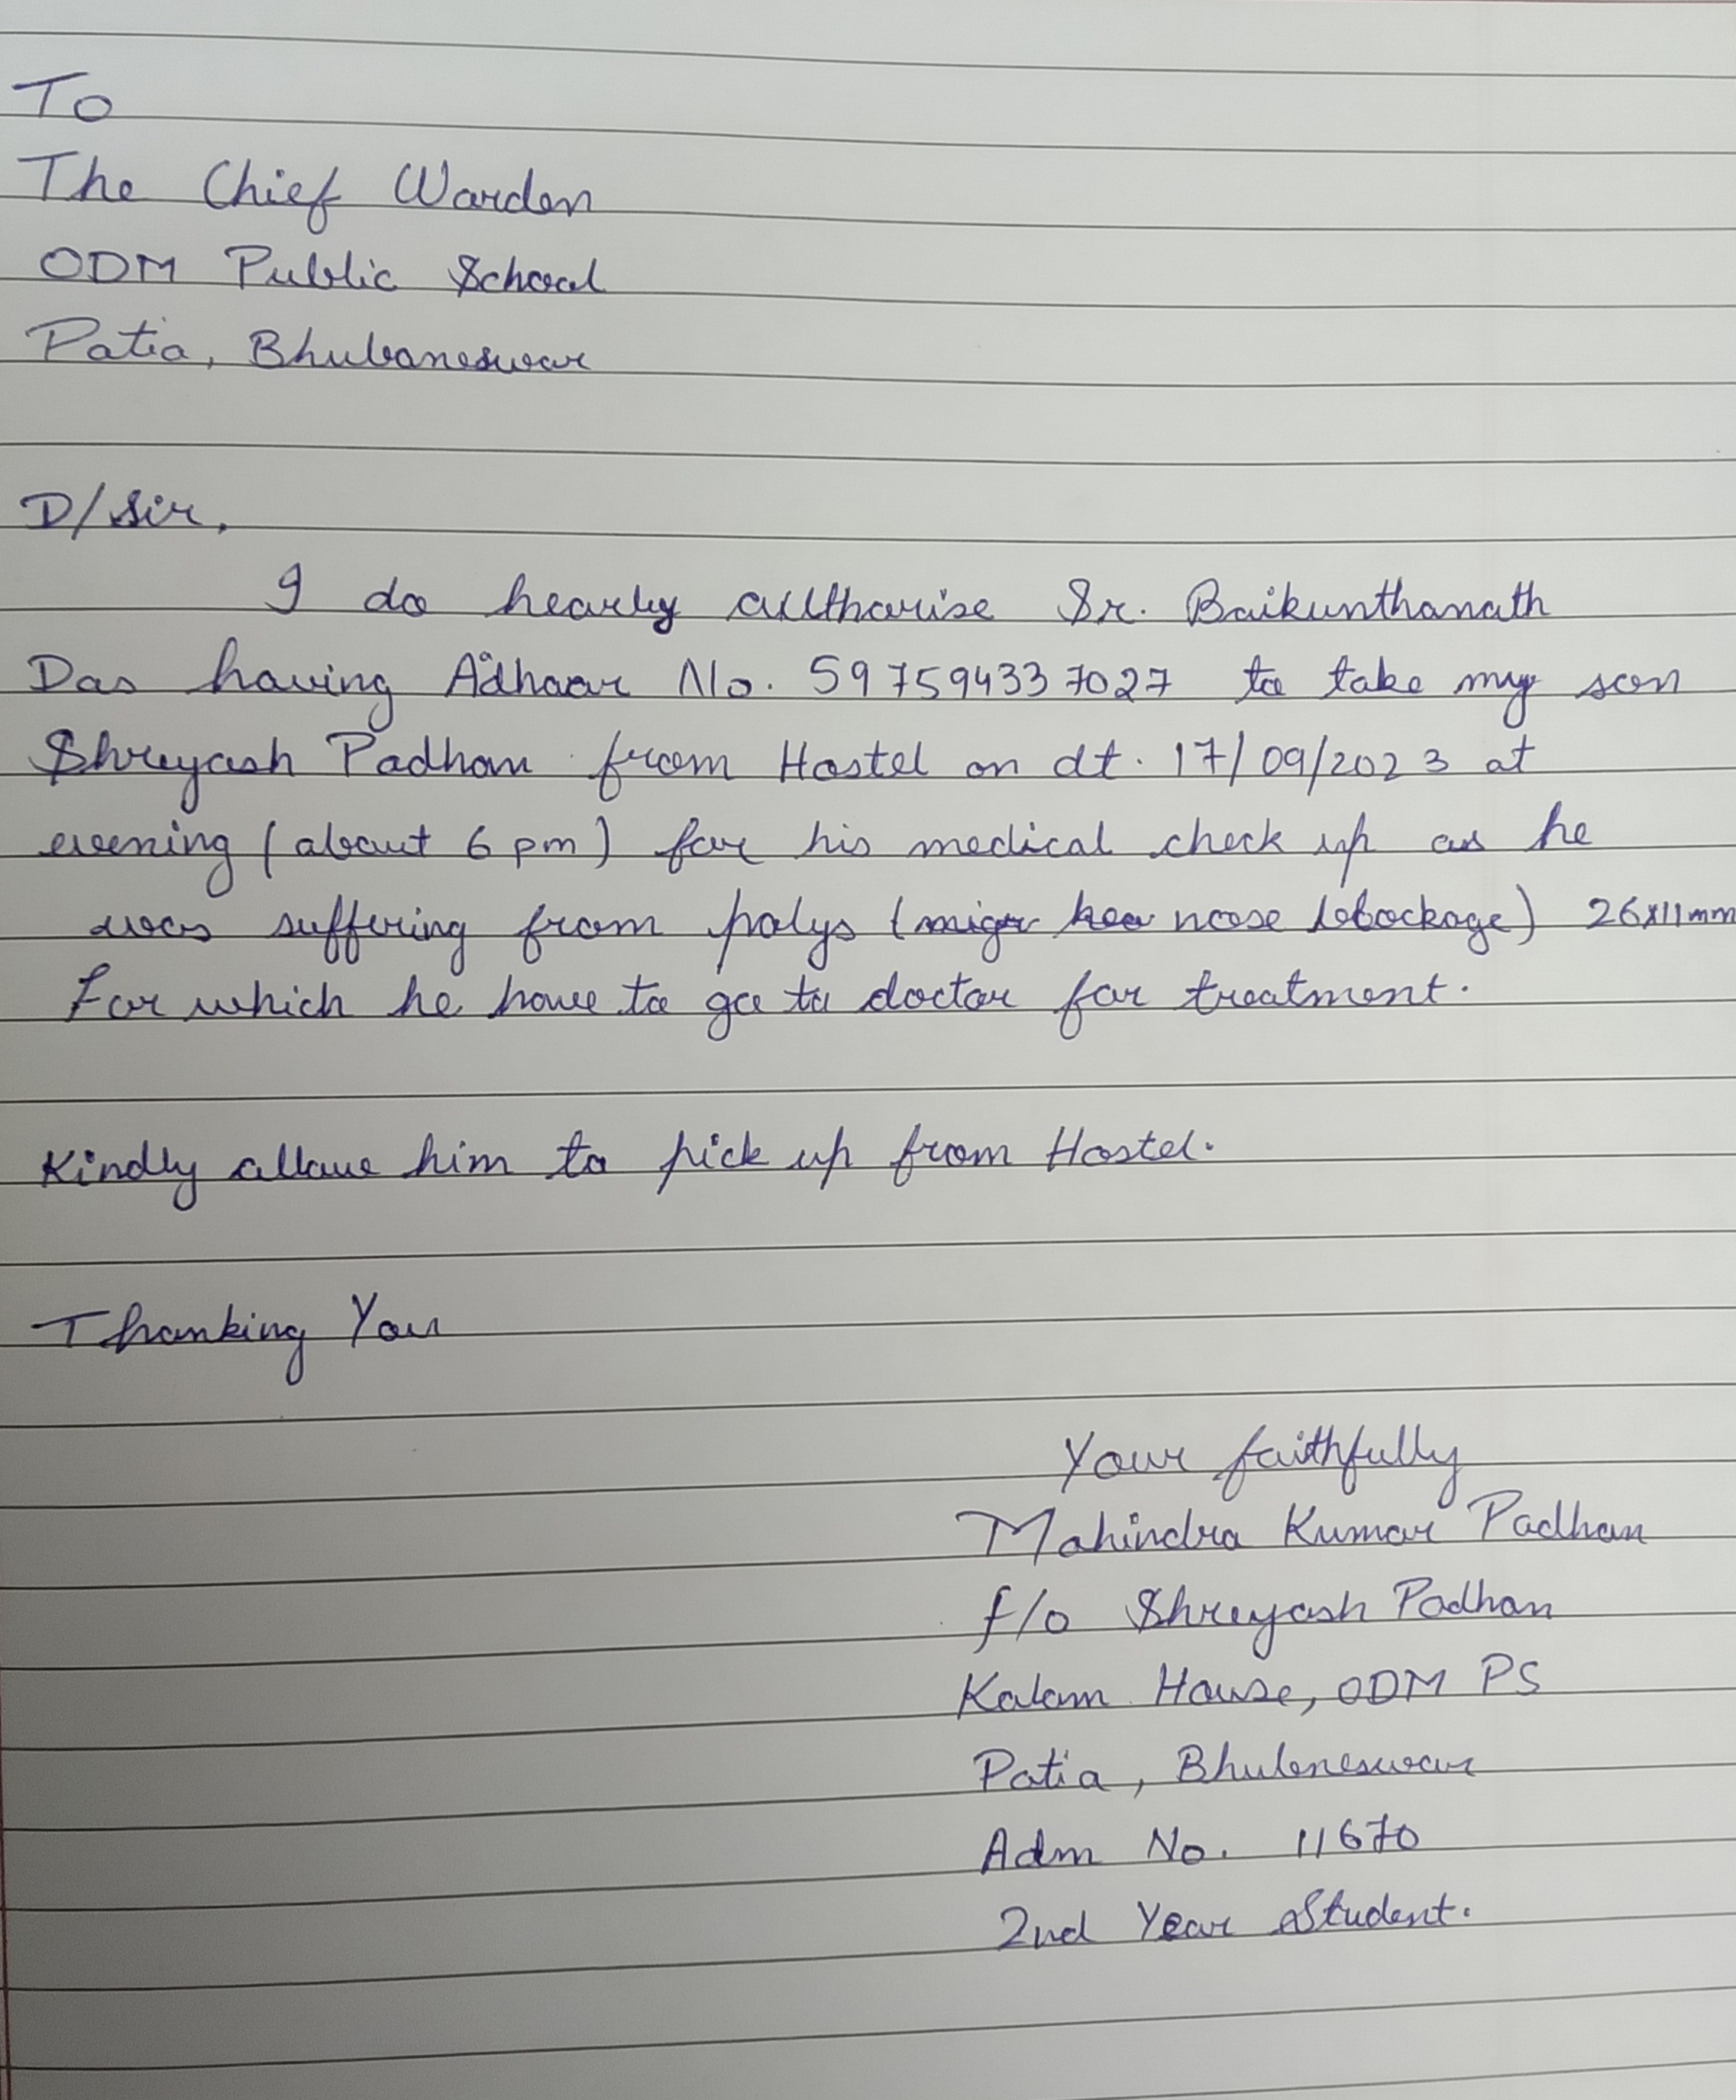 To
The Chief Warden
ODM Public School
Patia, Bhubaneswar
D/Sir,
I do hearby authorise Sr. Baikunthanath
Das having Adhaar No. 597594337027 to take my son
Shreyash Padhan from Hostel on dt. 17/09/2023 at
evening (about 6 pm) for his medical check up as he
was suffering from polys ( nose blockage) 26x11mm
For which he have to go to doctor for treatment.
Kindly allow him to pick up from Hostel.
Thanking You
Your faithfully
Mahindra Kumar Padhan
f/o Shreyash Padhan
Kalam House, ODM PS
Patia, Bhubneswar
Adm No. 11670
2nd Year Student.